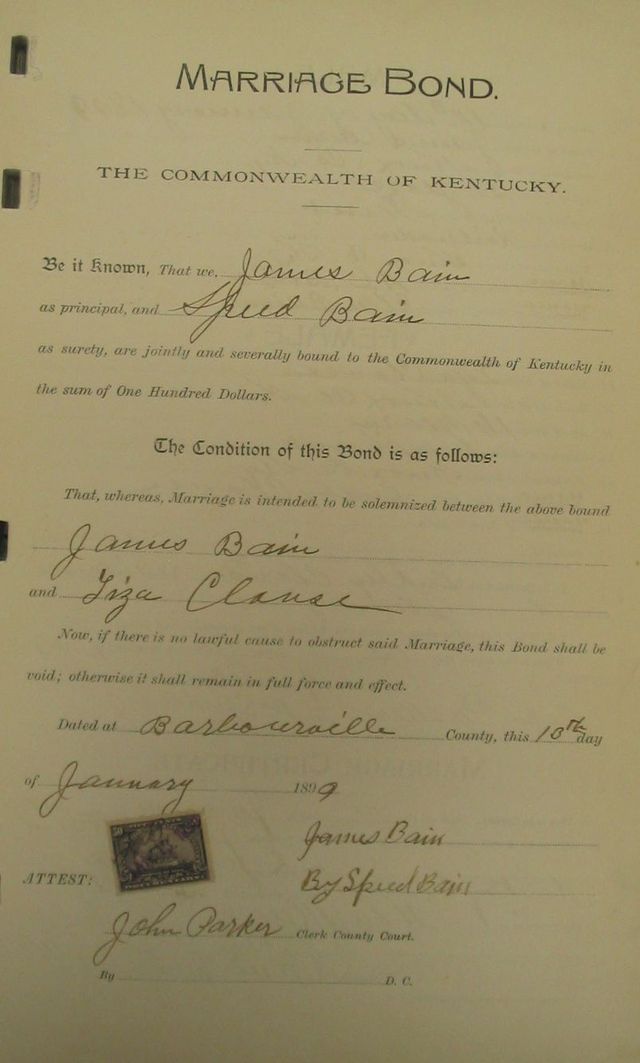 MARRIAGE BOND.
THE COMMONWEALTH OF KENTUCKY.
Be it Known, That we, James Bain
as principal, and Speed Bain
as surety, are jointly and severally bound to the Commonwealth of Kentucky in
the sum of One Hundred Dollars.
The Condition of this Bond is as follows:
That, whereas, Marriage is intended to be solemnized between the above bound
James Bain
and Liza Clouse
Now, if there is no lawful cause to obstruct said Marriage, this Bond shall be
void; otherwise it shall remain in full force and effect.
Dated at Barbourville County, this 10th day
of January 1899
James Bain
ATTEST: By Speed Bain
John Parker Clerk County Court.
By D. C.